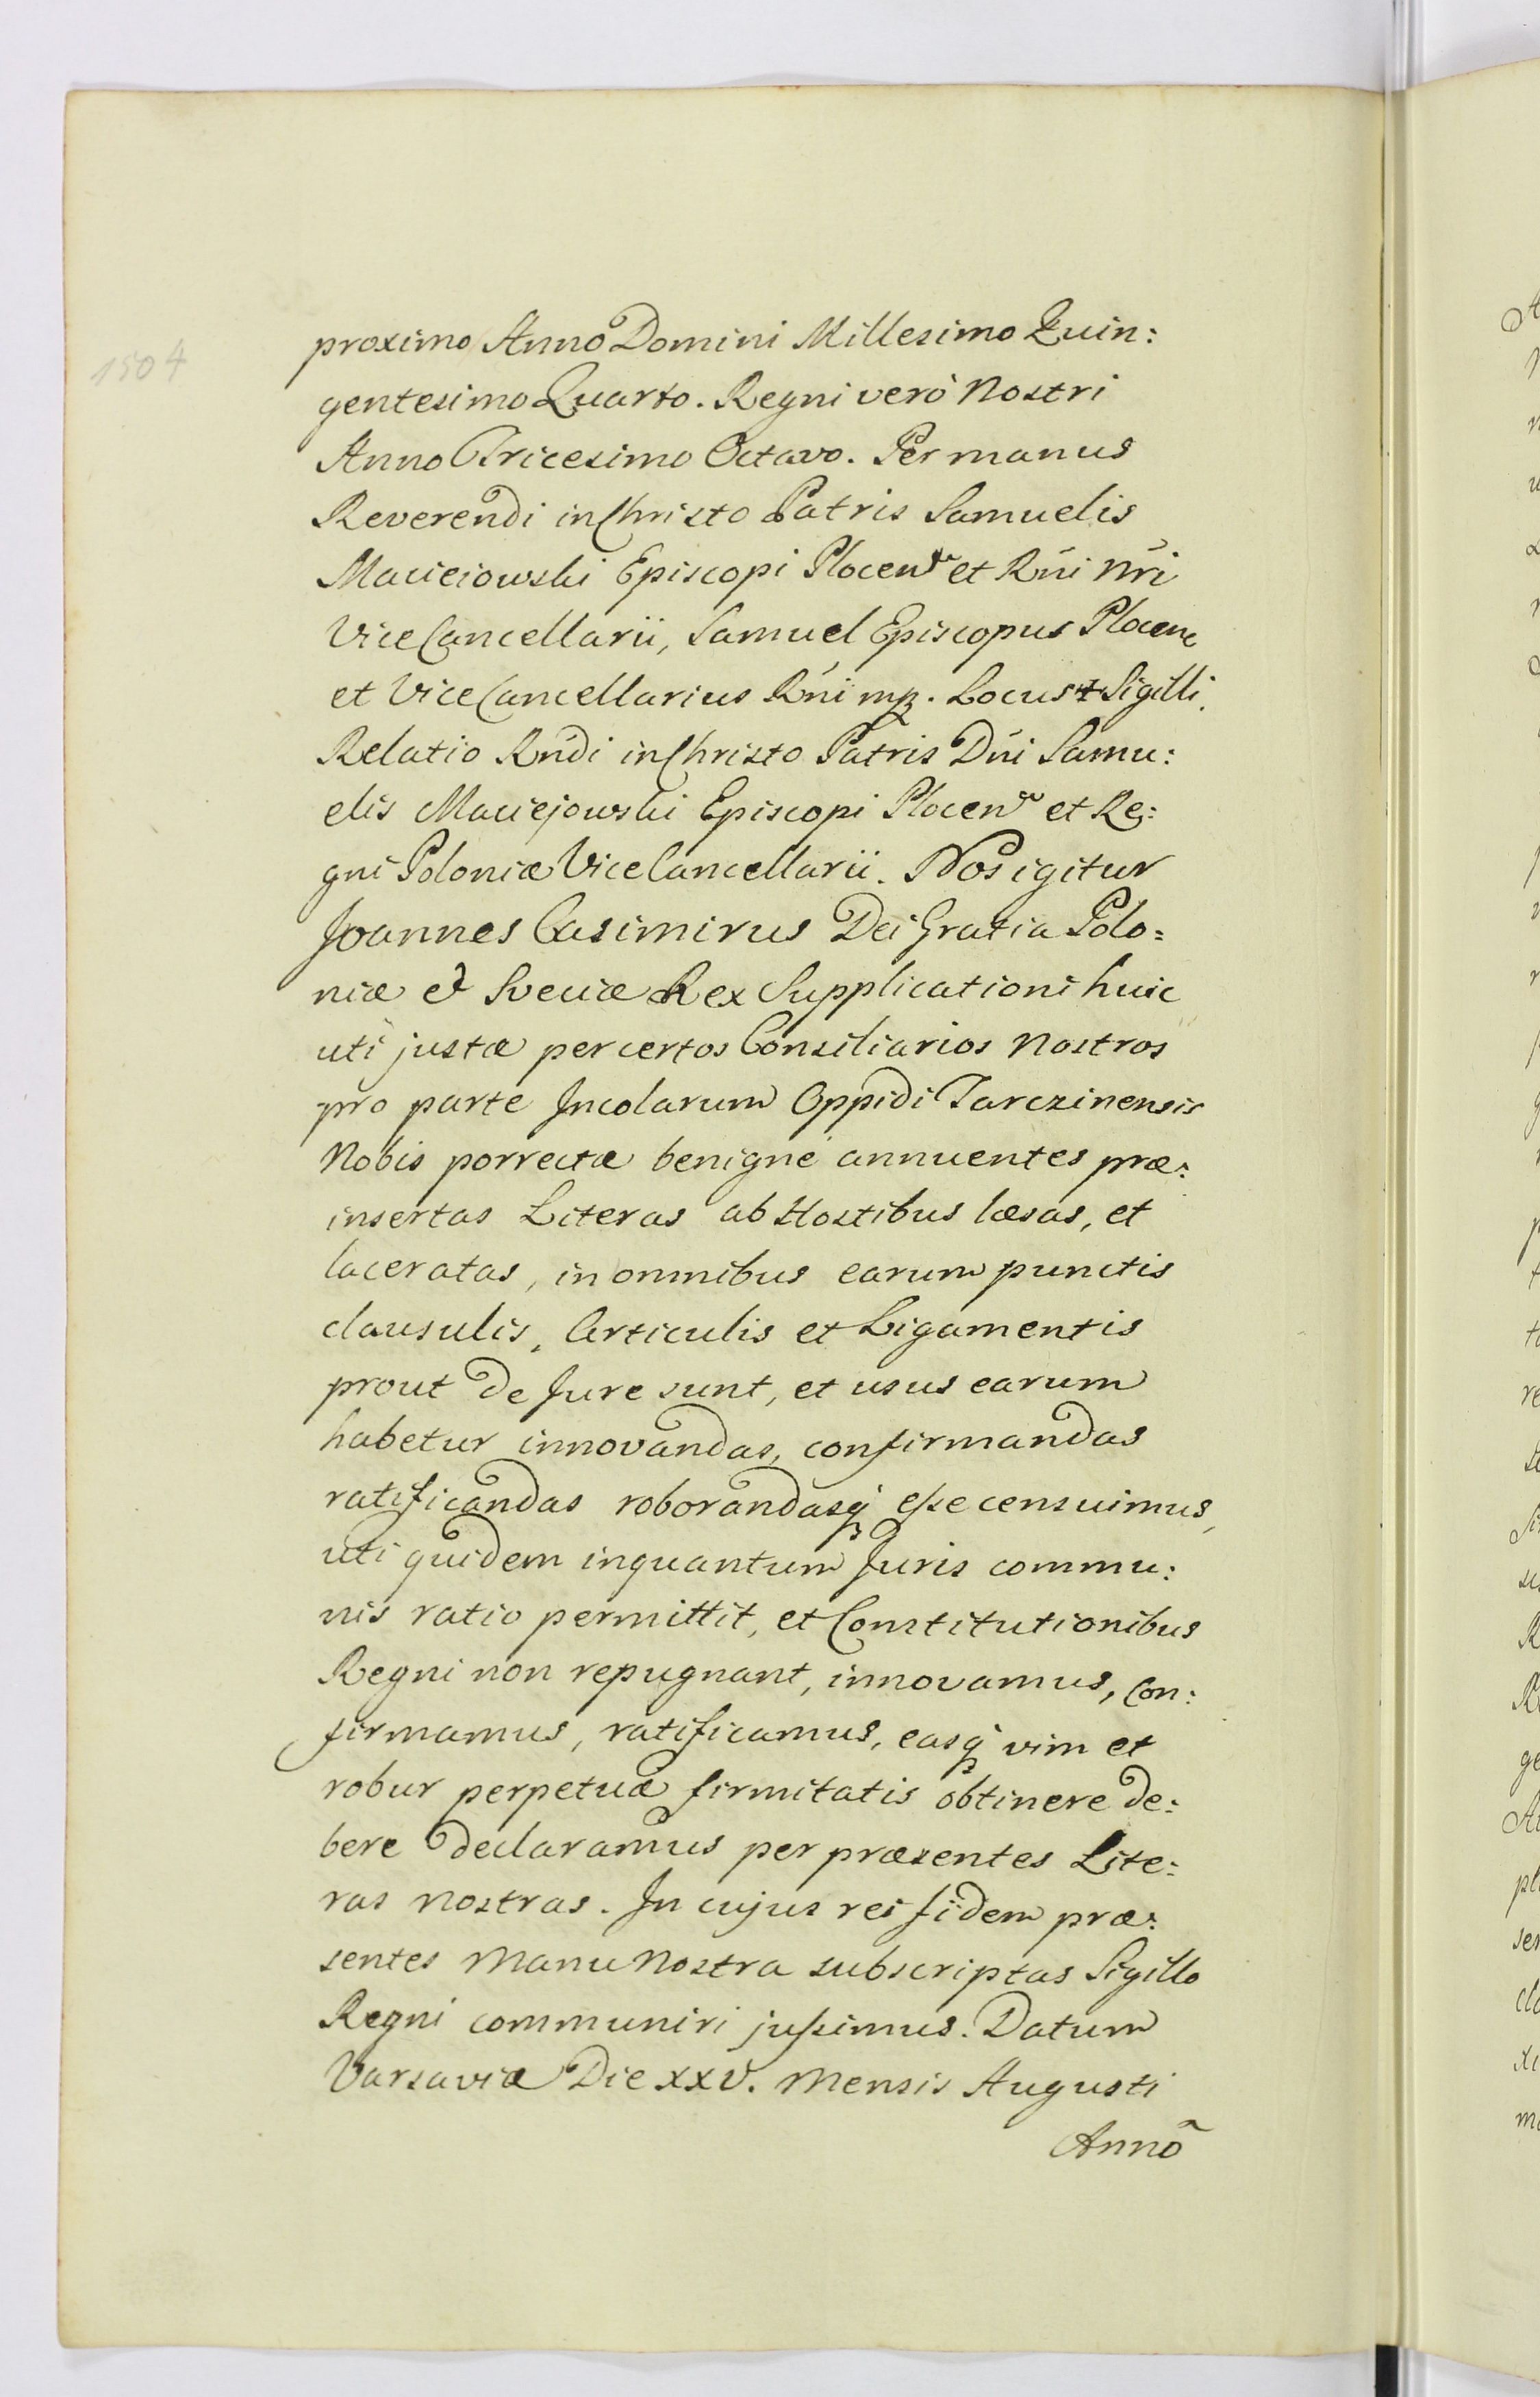 1504
proximo Anno Domini Millesimo Quin:
gentesimo Quarto. Regni verò Nostri
Anno Tricesimo Octavo. Per manus
Reverendi in Christo Patris Samuelis
Macieiowski Episcopi Plocen et Rni Nri
Vice Cancellarii, Samuel Episcopus Plocen
et Vice Cancellarius Rni mp. Locus + Sigilli.
Relatio Rndi in Christo Patris Dni Samu:
elis Maciejowski Episcopi Plocen et Re:
gni Poloniæ Vice Cancellarii. Nos igitur
Joannes Casimirus Dei Gratia Polo=
niæ & Sveciæ Rex Supplicationi huic
uti justæ per certos Consiliarios Nostros
pro parte Incolarum Oppidi Tarczinensis
Nobis porrectæ benignè annuentes præ:
insertas Literas ab Hostibus læsas, et
laceratas, in omnibus earum punctis
clausulis, Articulis et Ligamentis
prout de Jure sunt, et usus earum
habetur innovandas, confirmandas
ratificandas roborandasq́ esse censuimus,
uti quidem inquantum Juris commu:
nis ratio permittit, et Constitutionibus
Regni non repugnant, innovamus, con:
firmamus, ratificamus, easq́ vim et
robur perpetuæ firmitatis obtinere de:
bere declaramus per præsentes Lite:
ras nostras. In cujus rei fidem præ:
sentes Manu Nostra subscriptas Sigillo
Regni communiri jussimus. Datum
Varsaviæ Die XXV. Mensis Augusti
Annõ